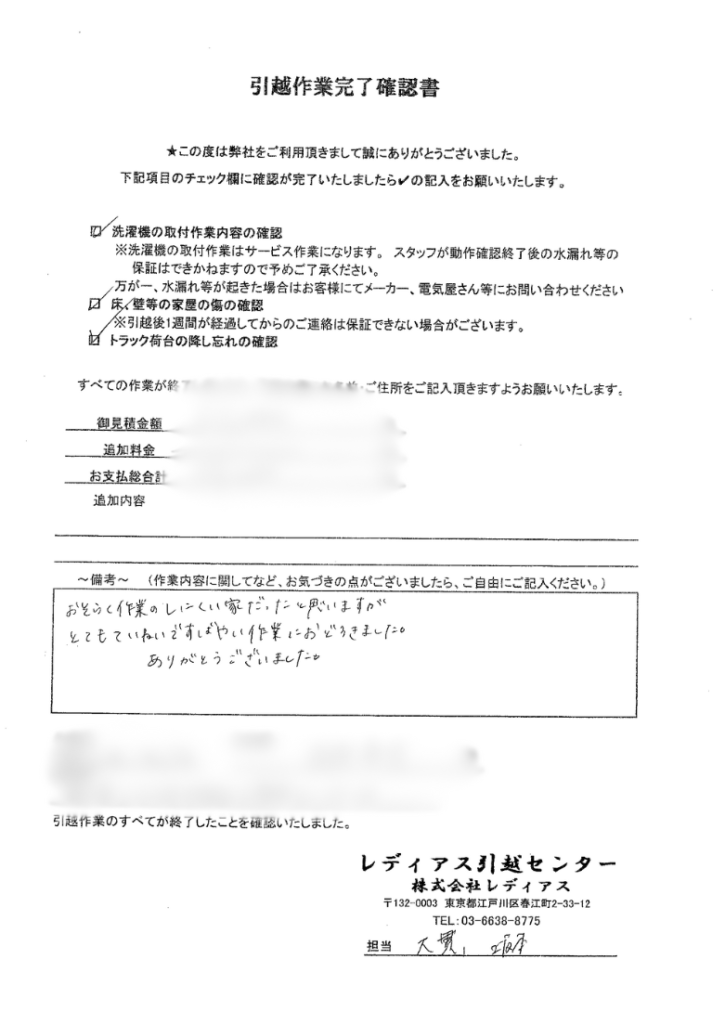 引越作業完了確認書
★この度は弊社をご利用頂きまして誠にありがとうございました。
下記項目のチェック欄に確認が完了いたしましたら✔の記入をお願いいたします。
☑ 洗濯機の取付作業内容の確認
※洗濯機の取付作業はサービス作業になります。 スタッフが動作確認終了後の水漏れ等の
保証はできかねますので予めご了承ください。
万が一、水漏れ等が起きた場合はお客様にてメーカー、電気屋さん等にお問い合わせください
☑ 床、壁等の家屋の傷の確認
※引越後1週間が経過してからのご連絡は保証できない場合がございます。
☑ トラック荷台の降し忘れの確認
すべての作業が終 ご住所をご記入頂きますようお願いいたします。
御見積金額
追加料金
お支払総合計
追加内容
~備考~ (作業内容に関してなど、お気づきの点がございましたら、ご自由にご記入ください。)
おそらく作業のしにくい家だったと思いますが
とてもていねいですばやい作業におどろきました。
ありがとうございました。
引越作業のすべてが終了したことを確認いたしました。
レディアス引越センター
株式会社レディアス
〒132-0003 東京都江戸川区春江町2-33-12
TEL:03-6638-8775
担当 大貫,